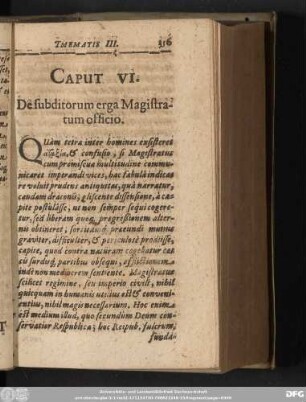 THEMATIS III. 316
CAPUT VI.
De subditorum erga Magistra-
tum officio.
QUàm tetra inter homines existeret
& confusio, si Magistratus
cum promiscua multitudine commu-
nicaret imperandi vices, hac fabulâ indica-
re voluit prudens antiquitas, quâ narratur,
caudam draconis, gliscente dissensione, à ca-
pite postulâsse, ut non semper sequi cogere-
tur, sed liberam quoq, progressionem alter-
nis obtineret, praeundi munus
graviter, difficulter, & prodiisse,
capite, quod contra naturam cogebatur cae-
cis surdisq partibus obsequi,
inde non mediocrem sentiente. Magistratus
scilicet regimine, seu imperio civili, nihil
quicquam in humanis utilius est & conveni-
entius, nihil magis necessarium. Hoc enim
est medium illud, quo secundùm Deum con-
servatur Respublica; hoc Reipub.
funda-